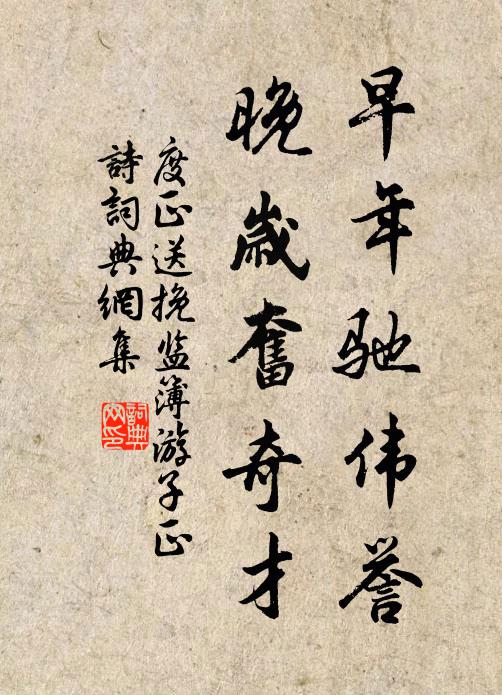 早年驰伟誉
晚岁奮奇才
度正送挽监簿游子正
詩詞典網集
詞典网印